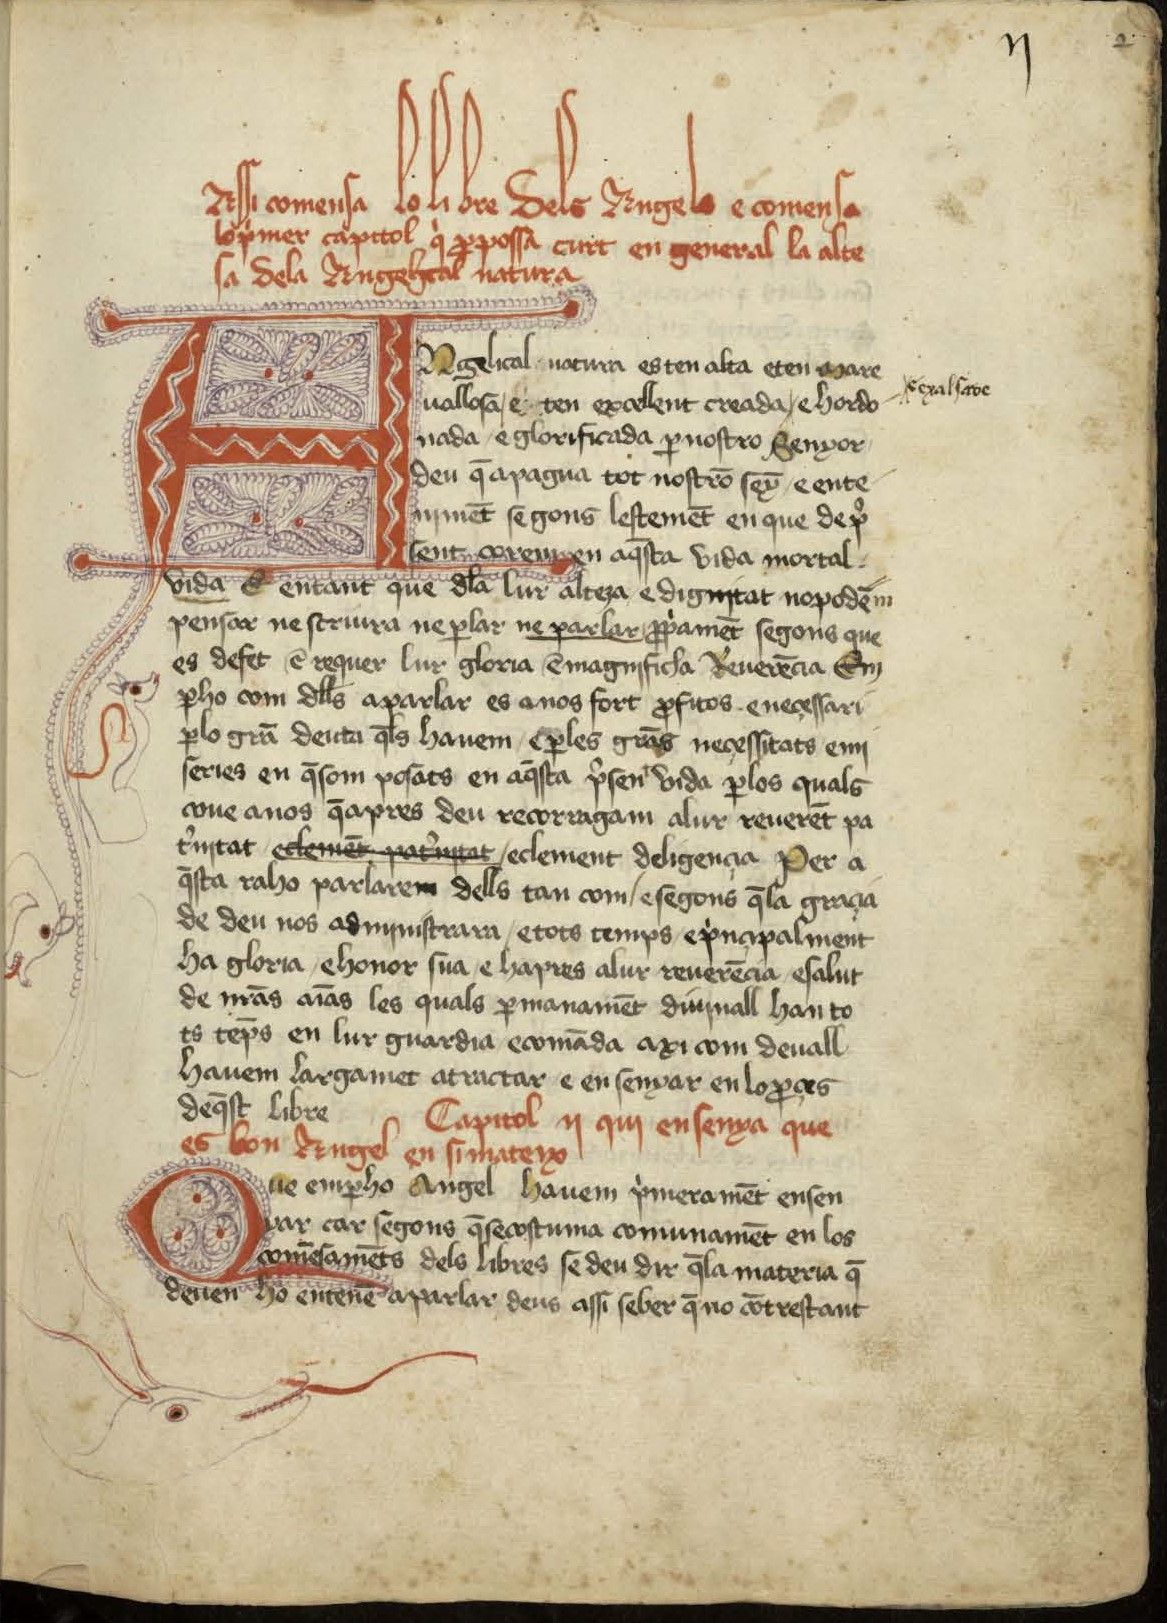 ɳ 2
Assi comensa lo libre dels Angels e comensa
lo p̍mer capitol q̍ ꝓpossa curt en general la alte
sa dela Angelical natura
ANgelical natura es ten alta e ten mare
uallosa / e ten excellent creada / e hordo e exalsade
nada / e glorificada ꝑ nostro Senyor
deu q̄ apagua tot nostrō sey̅ / e ente
niment̄ segons lestemēt en que de p̍
sent corem en aq̄sta vida mortal
vida E en tant que dl̄a lur alteza e dignitat no podēm
pensar ne scriura ne ꝑlar ne parlar ꝓp̍amēt segons que
es defet ē requer lur gloria ē magnificha Reuerēcia Em
ꝑho com dl̄ls a parlar es a nos fort ꝓfitos e neçessari
ꝑ lo grā deuta q̄ls hauem / e ꝑ les grās neçessitats e mi
series en q̄ som posats en aq̄sta p̍sent vida ꝑ los quals
coue a nos q̄ apres deu recorragam a lur reuerēt pa
t̍nitat eclemēt pat̍nitat / eclement deligençia Per a
q̄sta raho parlarem dells tan com / e segons q̄ la graçia
de deu nos administrara / e tots temps / e p̍nçipalment
ha gloria / e honor sua / e hapres a lur reuerēcia / e salut
de nrās aīas les quals ꝑmanamēt diuinall han to
ts tēps en lur guardia e comāda axi com deuall
hauem largamet a tractar e ensenyar en lo ꝓçes
deq̄st libre Capitol ij qui ensenya que
es bon Angel en si mateyx
Que emꝑho Angel hauem p̍meramēt ensen
yar car segons q̄ se costuma comunamēt en los
comēsamēts dels libres se deu dir q̄ la materia q̄
deuen ho entenē a parlar deus assi seber q̄ no cōtrestant